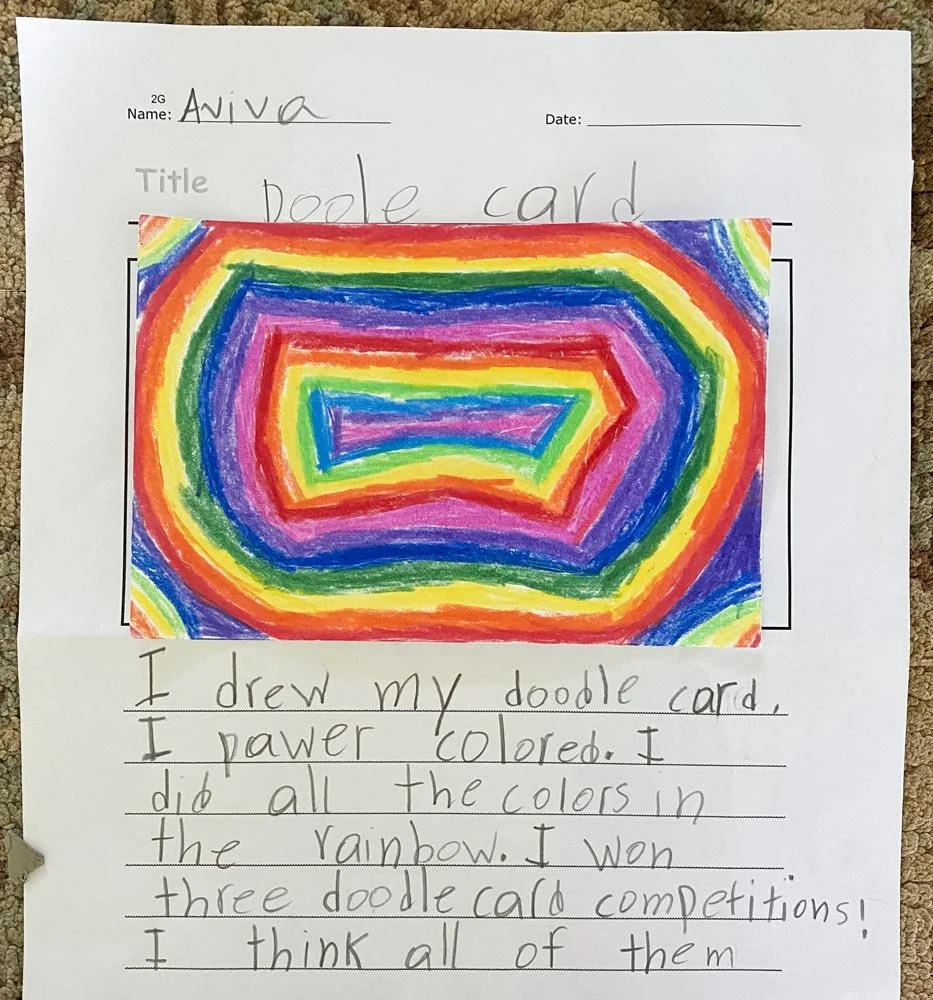 2G
Name: Aviva Date:
Title Doole card
I drew my doodle card.
I pawer colored. I
did all the colors in
the rainbow. I won
three doodle card competitions!
I think all of them